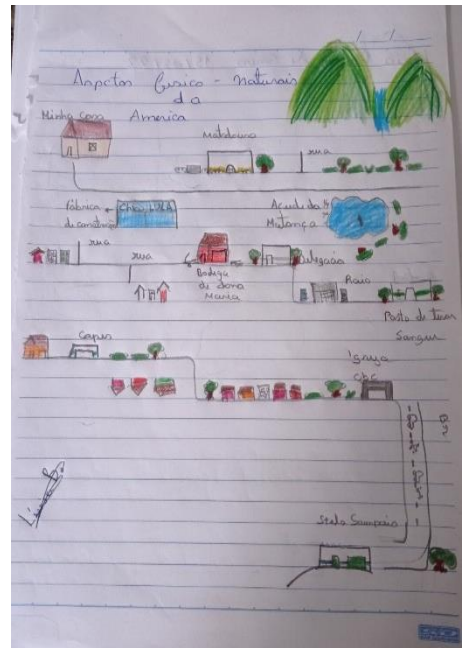 Aspctos fisico - naturais
da
America
Minha Casa
Matadouro
rua
Fábrica
de construção
Açude do
Matança
rua
rua
Bodega
de dona
Maria
Delegacia
Raio
Posto de tirar
Sangue
Capes
Igreja
BR
Stela Sampaio